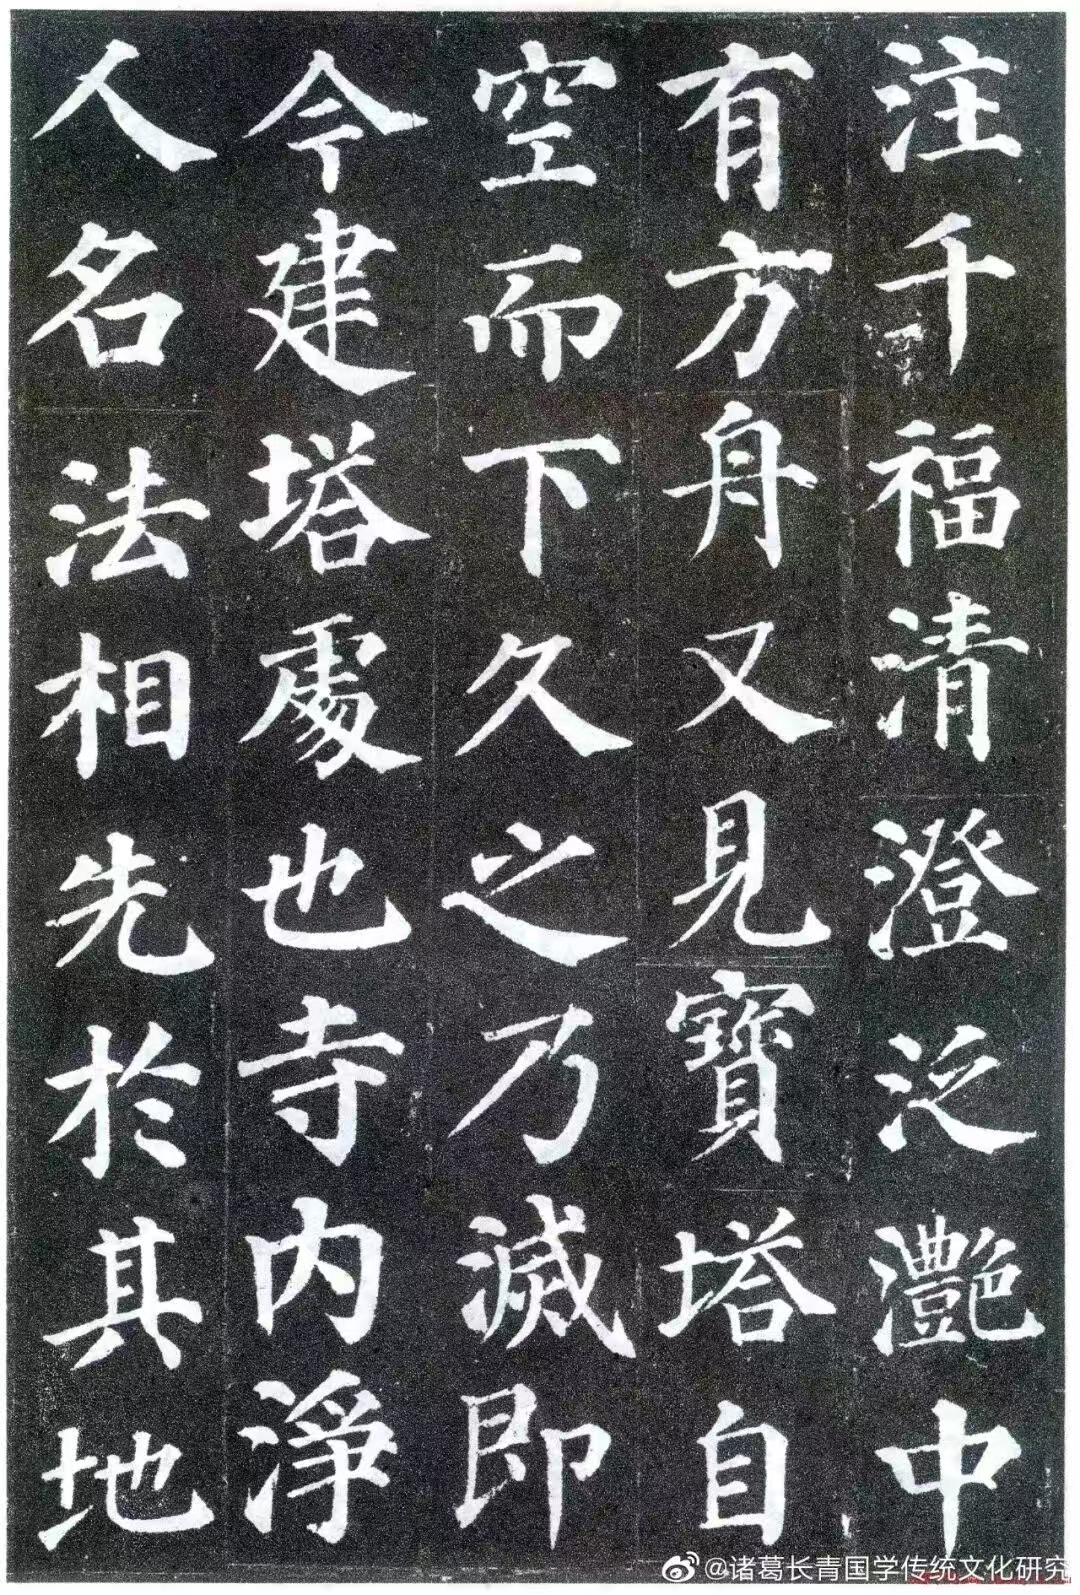 注千福清澄泛灧中
有方舟又見寶塔自
空而下久之乃滅即
今建塔處也寺内淨
人名法相先於其地
@诸葛长青国学传统文化研究